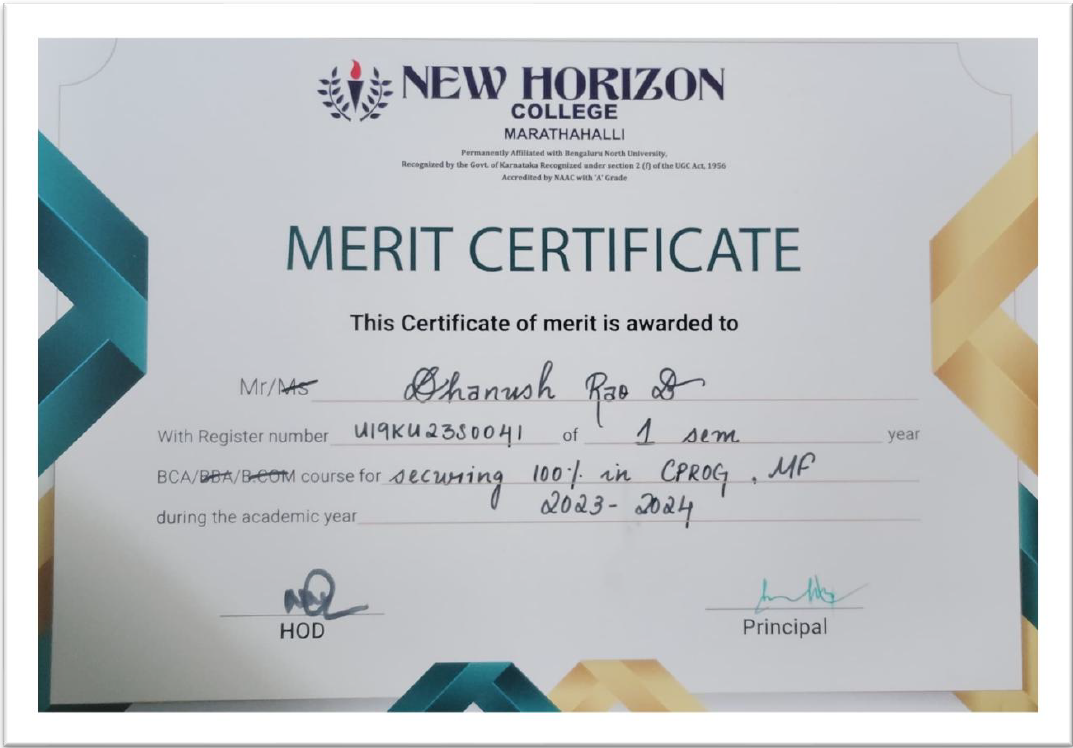 NEW HORIZON
COLLEGE
MARATHAHALLI
Permanently Affiliated with Bengaluru North University,
Recognized by the Govt. of Karnataka Recognized under section 2 (f) of the UGC Act, 1956
Accredited by NAAC with 'A' Grade
MERIT CERTIFICATE
This Certificate of merit is awarded to
Mr/Ms Dhanush Rao D
With Register number U19KU23S0041 of 1 sem year
BCA/BBA/B.COM course for securing 100% in CPROG, MF
during the academic year 2023-2024
HOD
Principal